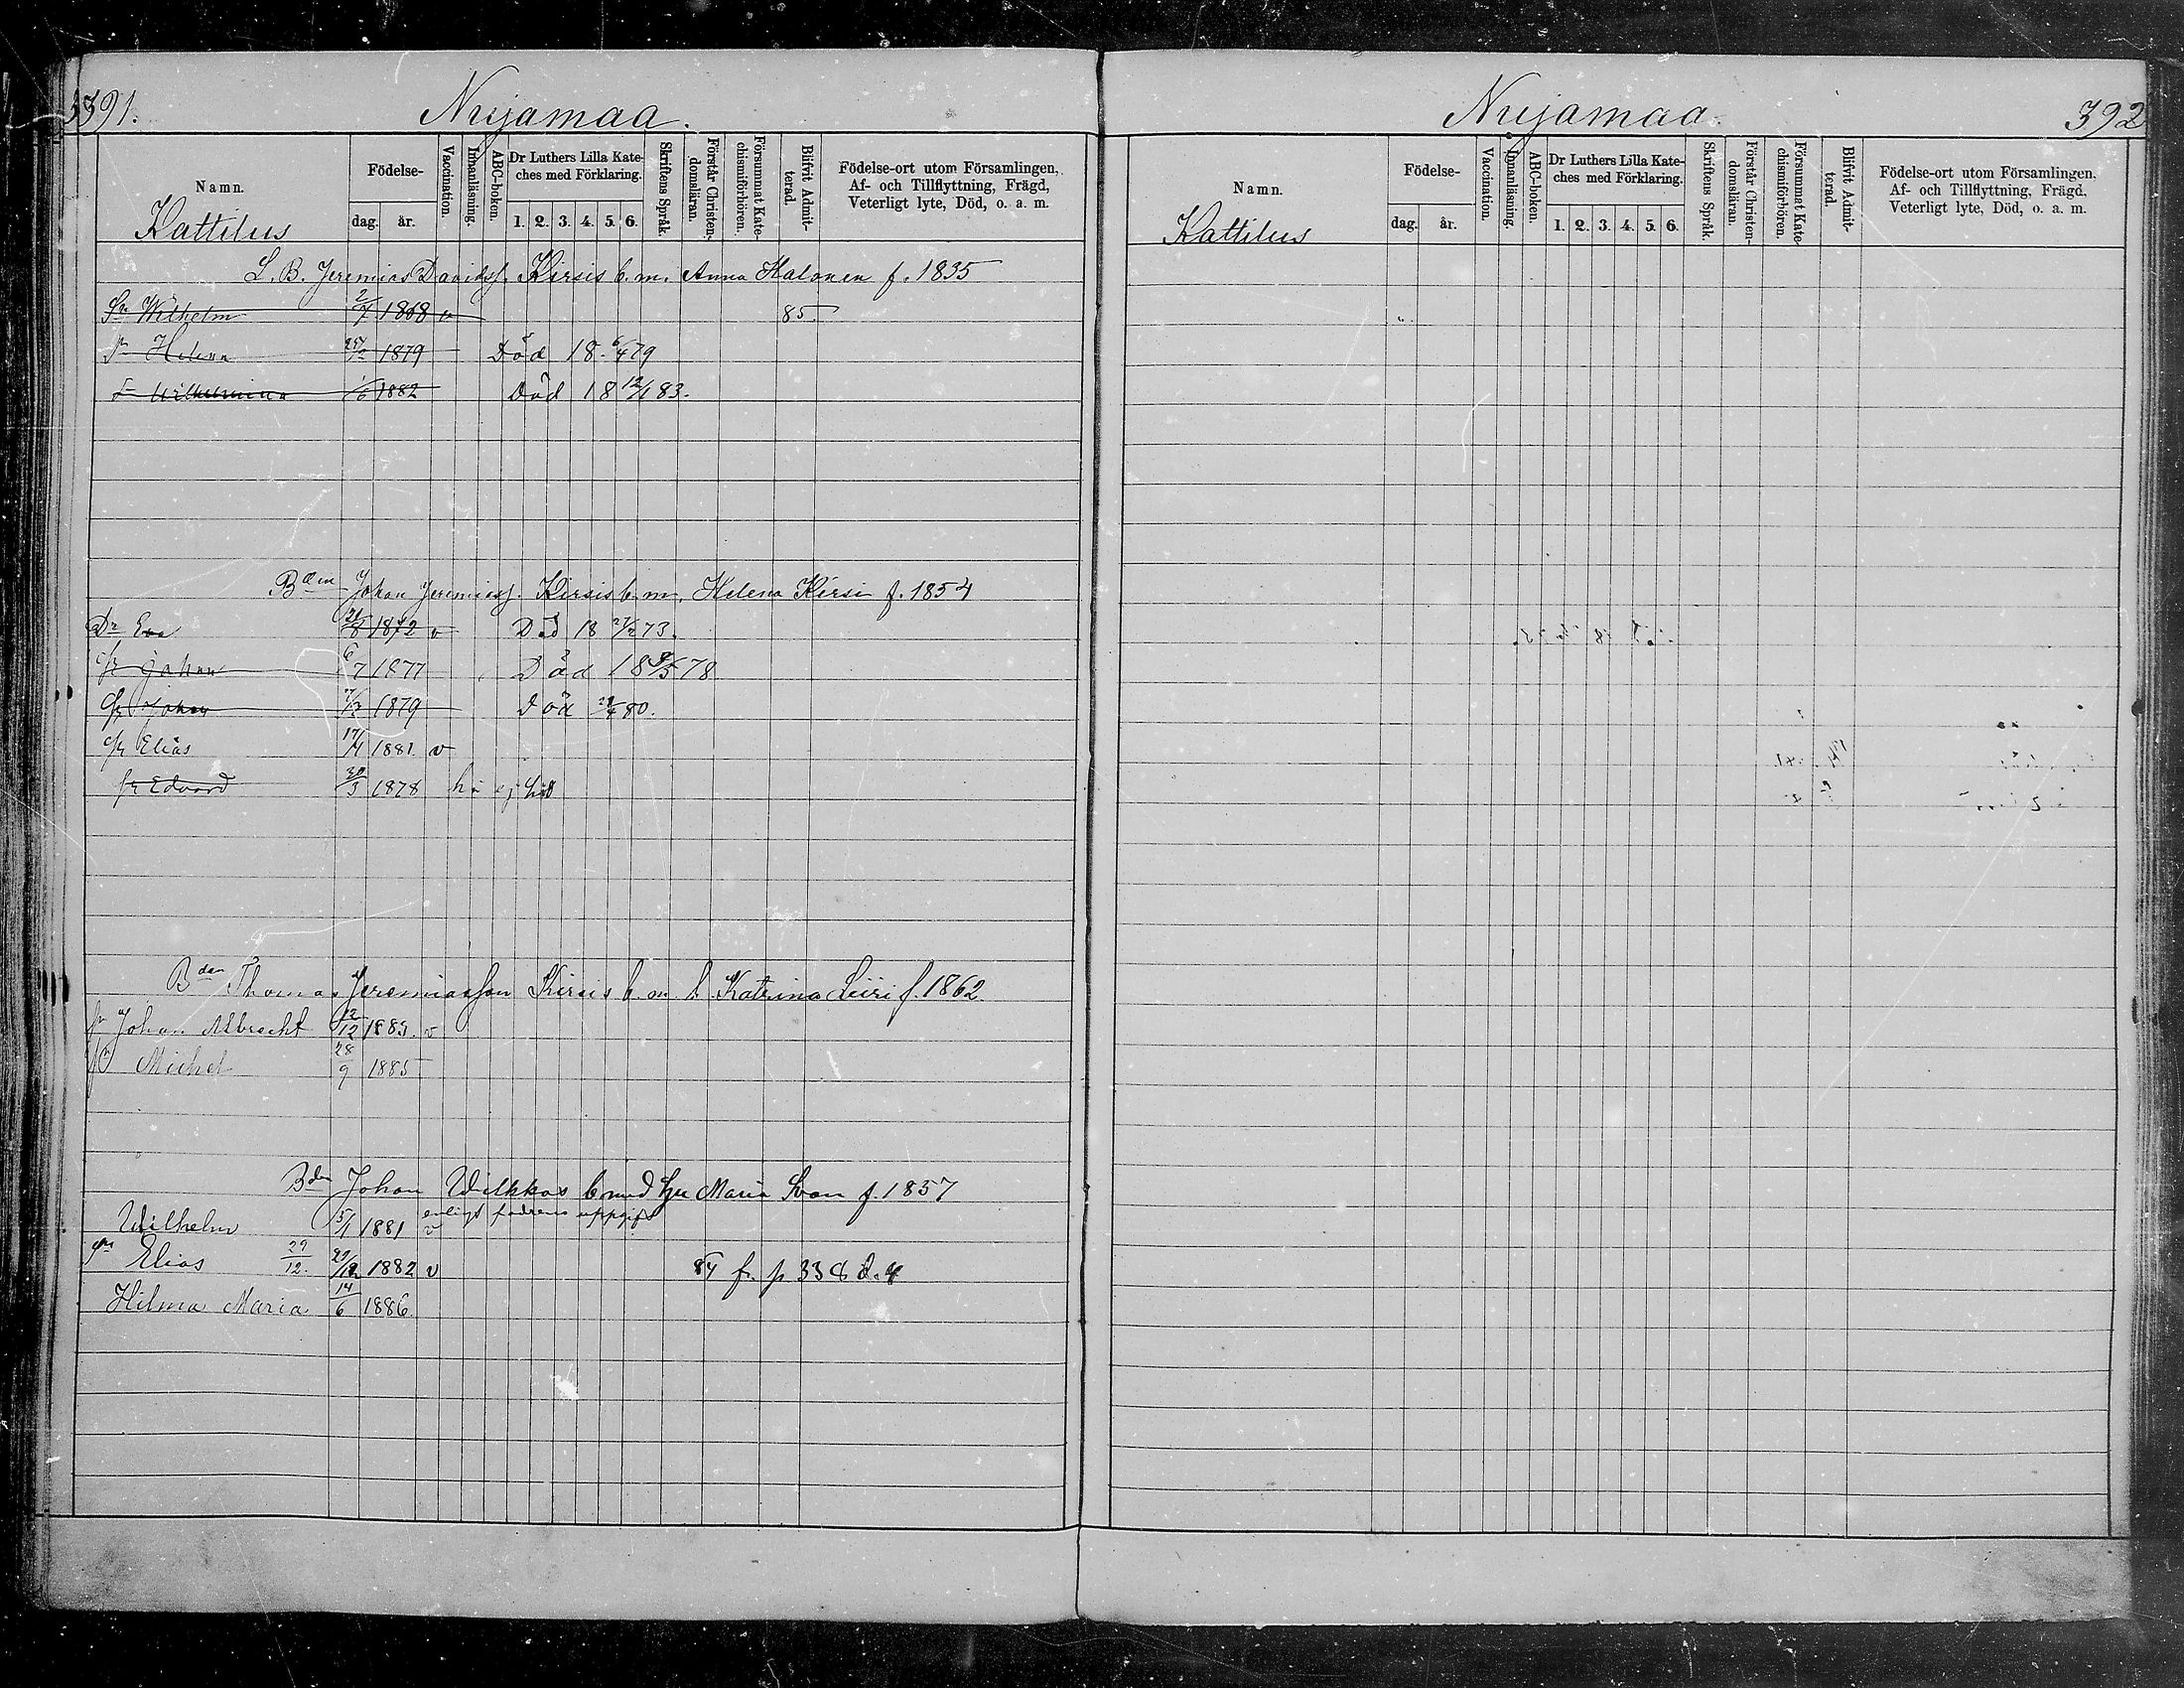 391.
Nuijamaa.
Namn.
Kattilus
Födelse-
dag. år.
Vaccination.
Innanläsning.
ABC-boken.
Dr Luthers Lilla Kate-
ches med Förklaring.
1. 2. 3. 4. 5. 6.
Skriftens Språk.
Förstår Christen-
domsläran.
Försummat Kate-
chismiförhören.
Blifvit Admit-
terad.
Födelse-ort utom Församlingen,
Af- och Tillflyttning, Frägd,
Veterligt lyte, Död, o. a. m.
L. B. Jeremias Davidss. Kirsis b. m. Anna Halonen f. 1835
Sn Wilhelm 2/7 1868 v 85.
Helena 1879 Död 18 6/4 79
Wilhelmina 1/6 1882 Död 18 12/1 83.
Bden Johan Jeremiass. Kirsis b. m. Helena Kirsi f. 1854
Dr Eva 21/8 1872 v Död 18 73.
Johan 6/7 1877 Död 18 78
Johan 1879 Död 80.
Elias 17/4 1881. v
Edvard 30/3 1878 ej hit
Bden Thomas Jeremiasson Kirsis b. m. h. Katrina Leiri f. 1862.
Johan Albrecht 12/12 1883. v
Michel 28/9 1885
Bden Johan Wilkkos b med hu Maria Ivon f. 1857
Wilhelm 5/1 1881 v enligt fadrens uppgift
Elias 29/12. 29/12 1882 v 84 fr. p 338 d. 4
Hilma Maria 14/6 1886.
Nuijamaa.
392
Namn.
Kattilus
Födelse-
dag. år.
Vaccination.
Innanläsning.
ABC-boken.
Dr Luthers Lilla Kate-
ches med Förklaring.
1. 2. 3. 4. 5. 6.
Skriftens Språk.
Förstår Christen-
domsläran.
Försummat Kate-
chismiförhören.
Blifvit Admit-
terad.
Födelse-ort utom Församlingen,
Af- och Tillflyttning, Frägd,
Veterligt lyte, Död, o. a. m.